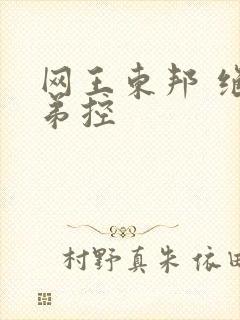 网王东邦 继
弟控
村野真朱 依田